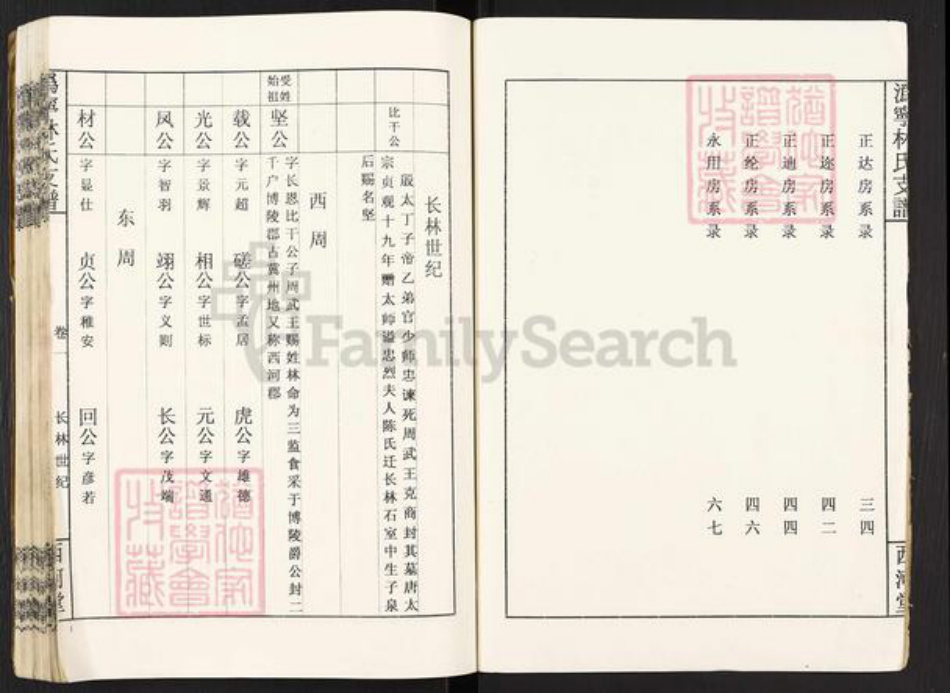 正达房系录 三四
正迩房系录 四二
正迪房系录 四四
正纶房系录 四六
永用房系录 六七
林氏支谱
西河堂
长林世纪
比干公
殷太丁子帝乙弟官少师忠谏死周武王克商封其墓唐太
宗贞观十九年赠太师谥忠烈夫人陈氏迁长林石室中生子泉
后赐名坚
西周
受姓始祖
坚公
字长恩比干公子周武王赐姓林命为三监食采于博陵爵公封二
千户博陵郡古冀州地又称西河郡
载公字元超 磋公字孟居 虎公字雄德
光公字景辉 相公字世标 元公字文通
凤公字智羽 翊公字义则 长公字茂端
东周
材公字显仕 贞公字稚安 回公字彦若
卷一
长林世纪
FamilySearch